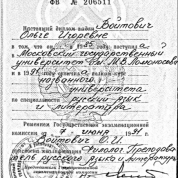 ФВ № 206511
Настоящий диплом выдан Войтович
Ольге Игоревне
в том, что она в 19 году поступила в
Московский государственный
университет им. М.В. Ломоносова
и в 19 году окончила полный курс
названного
университета
по специальности русский язык
и литература
Решением Государственной экзаменационной
комиссии 7 июня
Войтович О.И.
Филолог. Преподава
тель русского языка и литературы